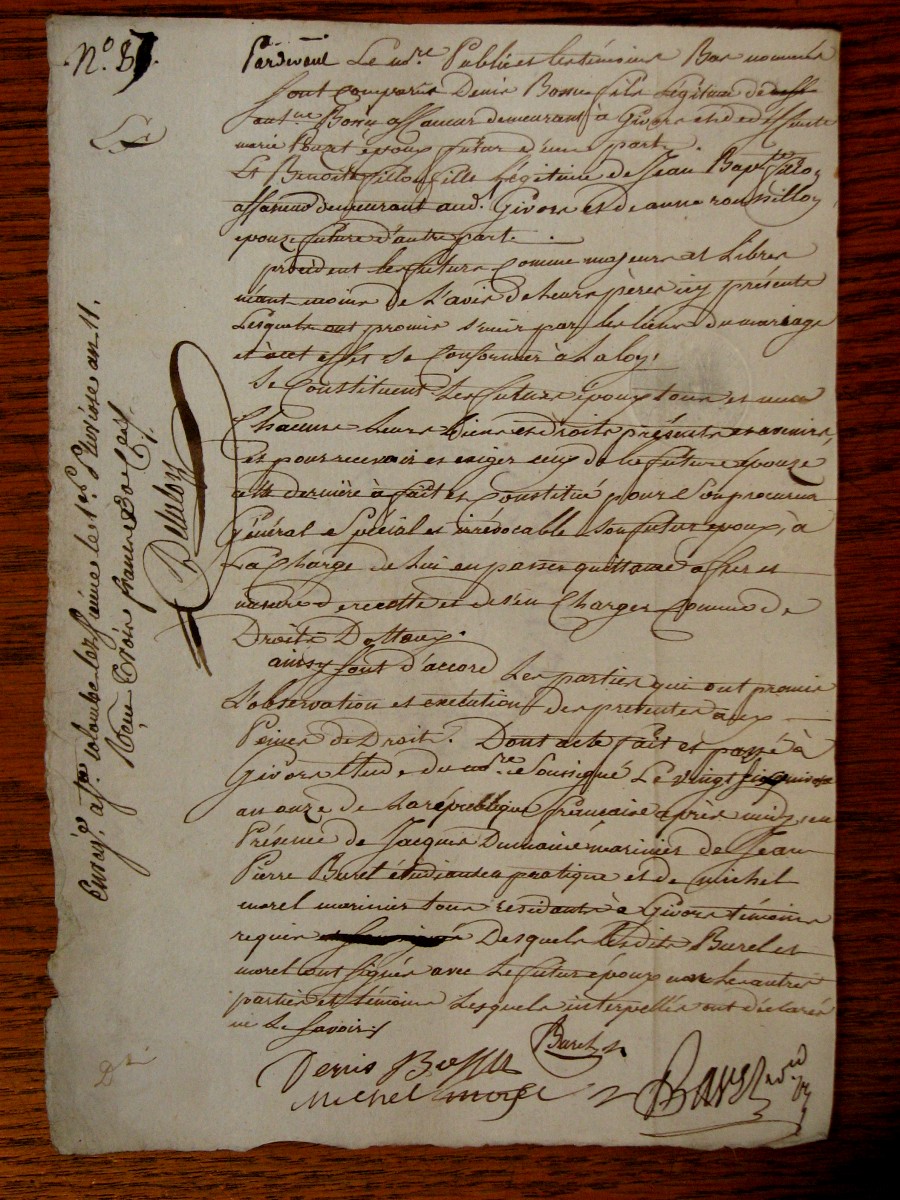 N.º 87.
Pardevant Le n.re Public et les témoins Bas nommés
sont comparus Denis Bossu fils Légitime de
Bossu affaneur demeurant à Givors et de deffunte
marie Buret époux futur d'une part.
Et Benoite fillon fille Légitime de Jean Bap.te fillon
affaneur demeurant aud. Givors et de anne roussillon
épouze future d'autre part.
procédent les futurs comme majeurs et Libres
néant moins de L'avis de Leurs pères icy présents
Lesquels ont promis s'unir par les liens du mariage
et à cet effet se Conformer à La loy,
Se Constituent Les futurs époux tous et uns
Chacuns Leurs biens et Droits présents et avenirs,
et pour recevoir et exiger ceux de la future épouze
cette dernière à fait et Constitué pour Son procureur
Général Spécial et irrévocable son futur époux, à
La Charge de Lui en passer quittance a fur et
mesure de recette et de s'en Charger Comme de
Droits Dottaux.
ainsy sont d'accord Les parties qui ont promis
L'observation et exécution des présentes aux
Peines de Droit. Dont acte fait et passé à
Givors Etude du n.re Soussigné Le vingt
an onze de La république française après midy, en
Présence de Jacques Dumaine marinier de Jean
Pierre Buret étudiant en pratique et de michel
morel marinier tous résidants à Givors témoins
requis Desquels Lesdits Buret et
morel ont signés avec Le futur époux non Les autres
parties et témoins Lesquels interpellés ont déclarés
ne Le savoir
Buret
Denis Bossu
Michel morel
Enreg.é à S.te Colombe lez Vienne le 1.er Pluviose an 11.
Reçu trois francs 30 c.es